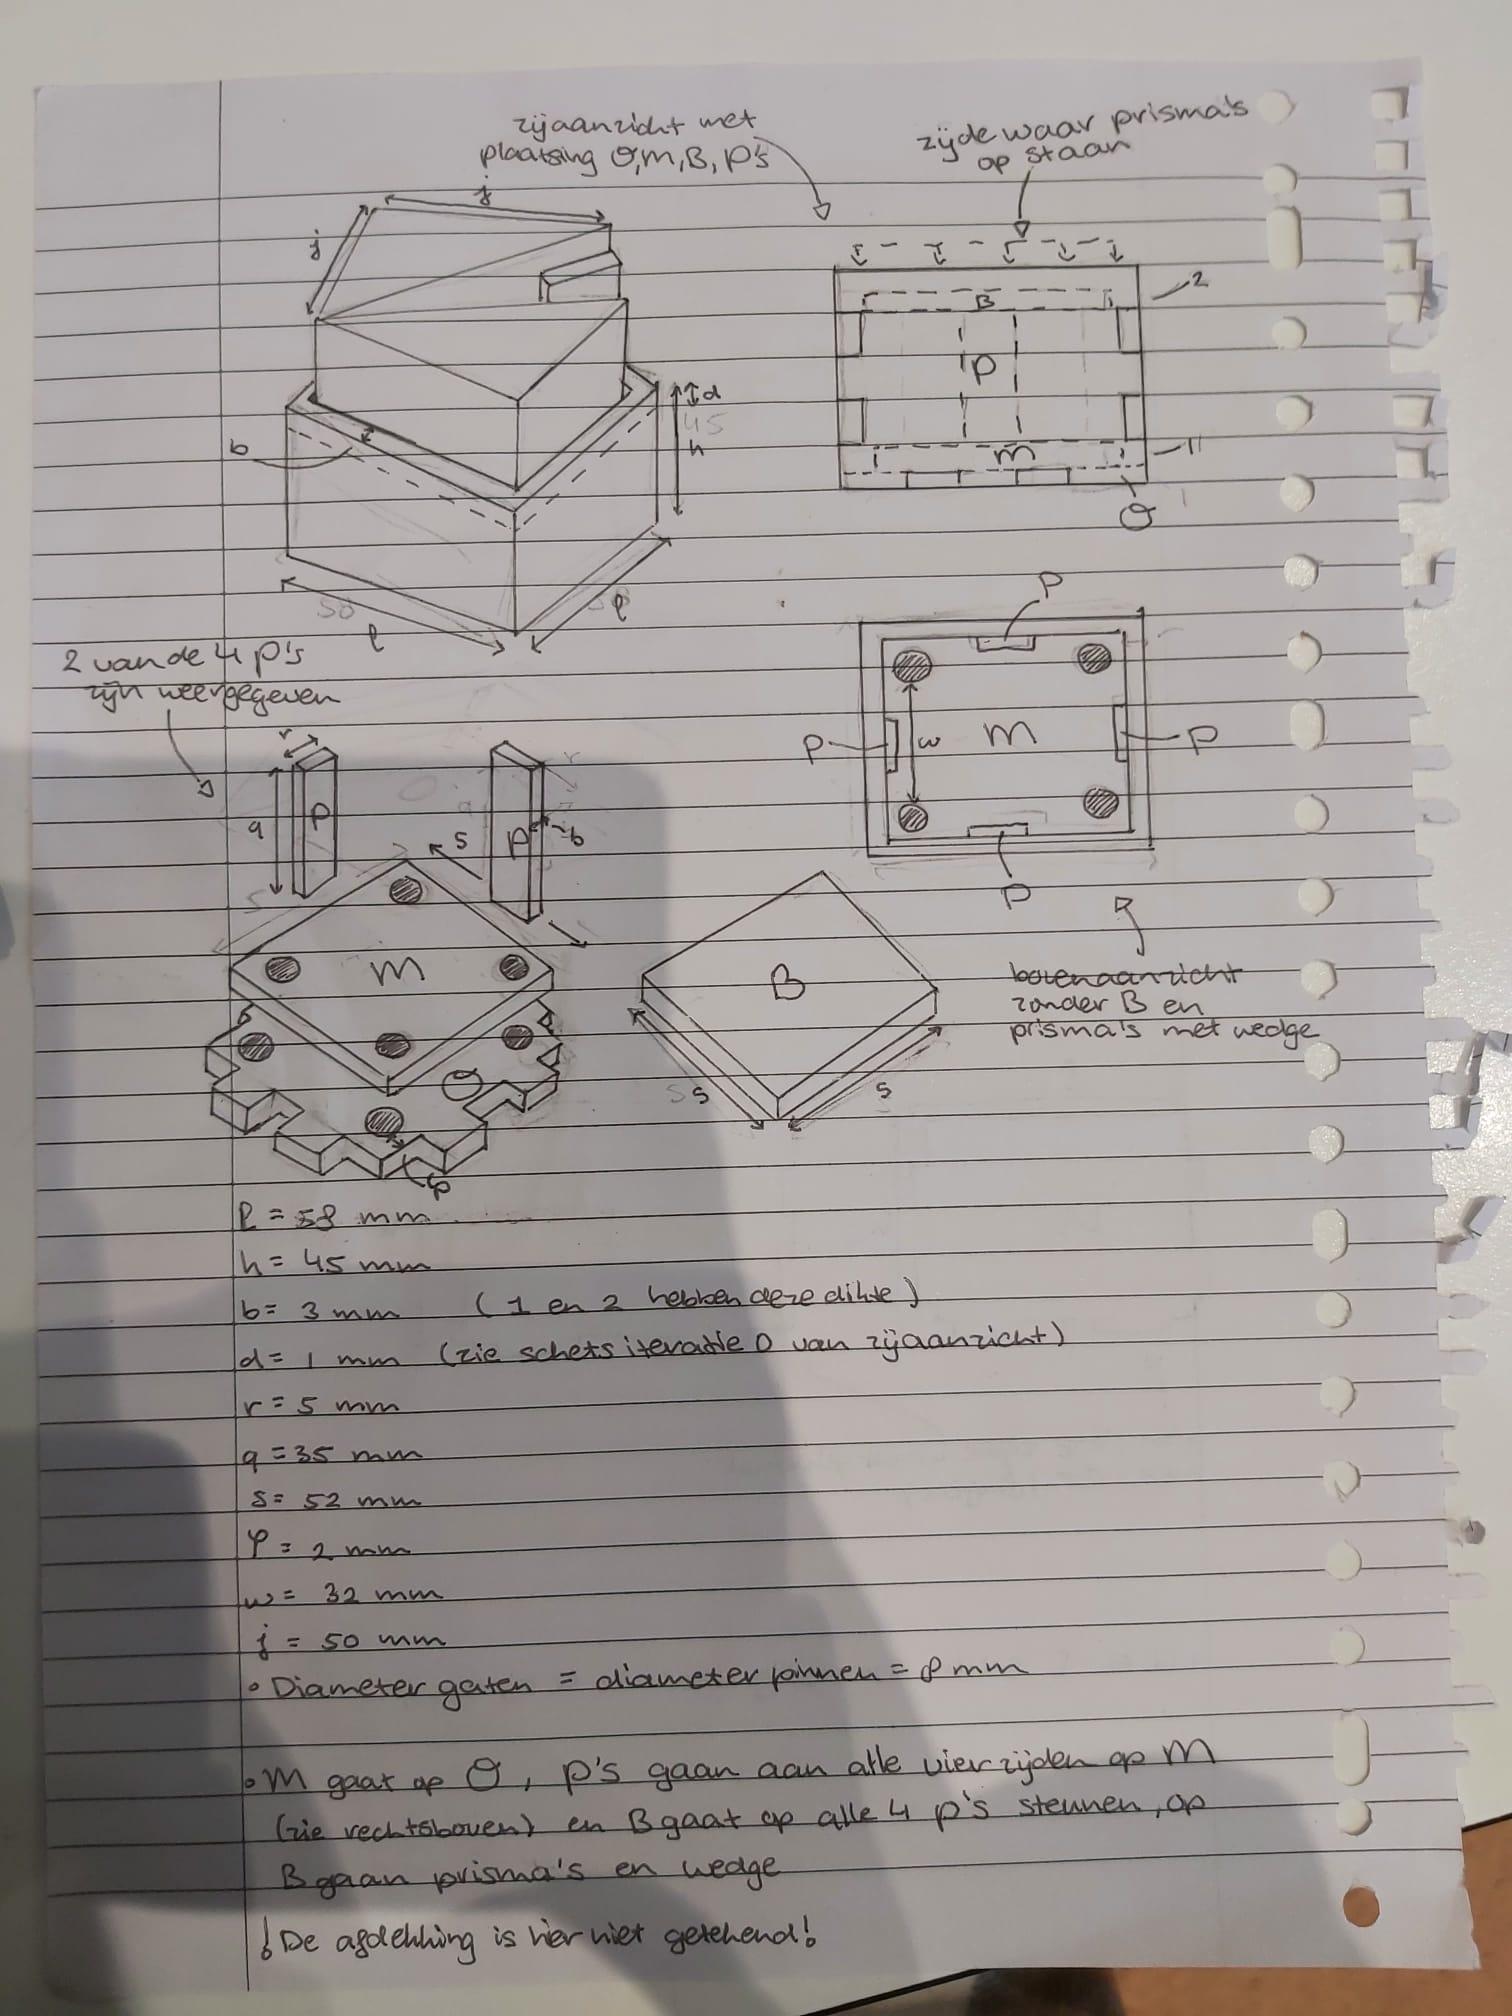 zijaanzicht met
plaatsing O, M, B, P's
zijde waar prisma's
op staan
j
j
b
d
45
h
l
l
2
B
P
M
1
O
2 van de 4 p's
zijn weergegeven
r
q
P
s
P
b
r
M
O
φ
B
s
s
P
P
w
M
P
P
bovenaanzicht
zonder B en
prisma's met wedge
l = 58 mm
h = 45 mm
b = 3 mm (1 en 2 hebben deze dikte)
d = 1 mm (zie schets iteratie 0 van zijaanzicht)
r = 5 mm
q = 35 mm
s = 52 mm
φ = 2 mm
w = 32 mm
j = 50 mm
• Diameter gaten = diameter pinnen = 8 mm
• M gaat op O, p's gaan aan alle vier zijden op M
(zie rechtsboven) en B gaat op alle 4 p's steunen, op
B gaan prisma's en wedge
! De afdekking is hier niet getekend!